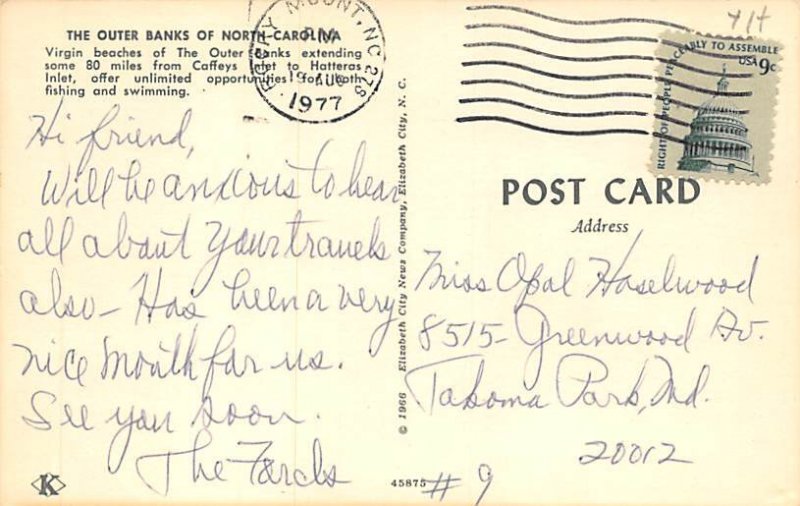 THE OUTER BANKS OF NORTH CAROLINA
Virgin beaches of The Outer Banks extending
some 80 miles from Caffeys Inlet to Hatteras
Inlet, offer unlimited opportunities for both
fishing and swimming.
ROCKY MOUNT, NC 278
PM
19 AUG
1977
RIGHT OF PEOPLE PEACEABLY TO ASSEMBLE
USA 9c
Hi friend,
Will be anxious to hear
all about your travels
also - Has been a very
nice month for us.
See you soon.
The
K
© 1966 Elizabeth City News Company, Elizabeth City, N. C.
45875
POST CARD
Address
Miss Opal Haselwood
8515- Greenwood Av.
Takoma Park, Md.
20012
#9